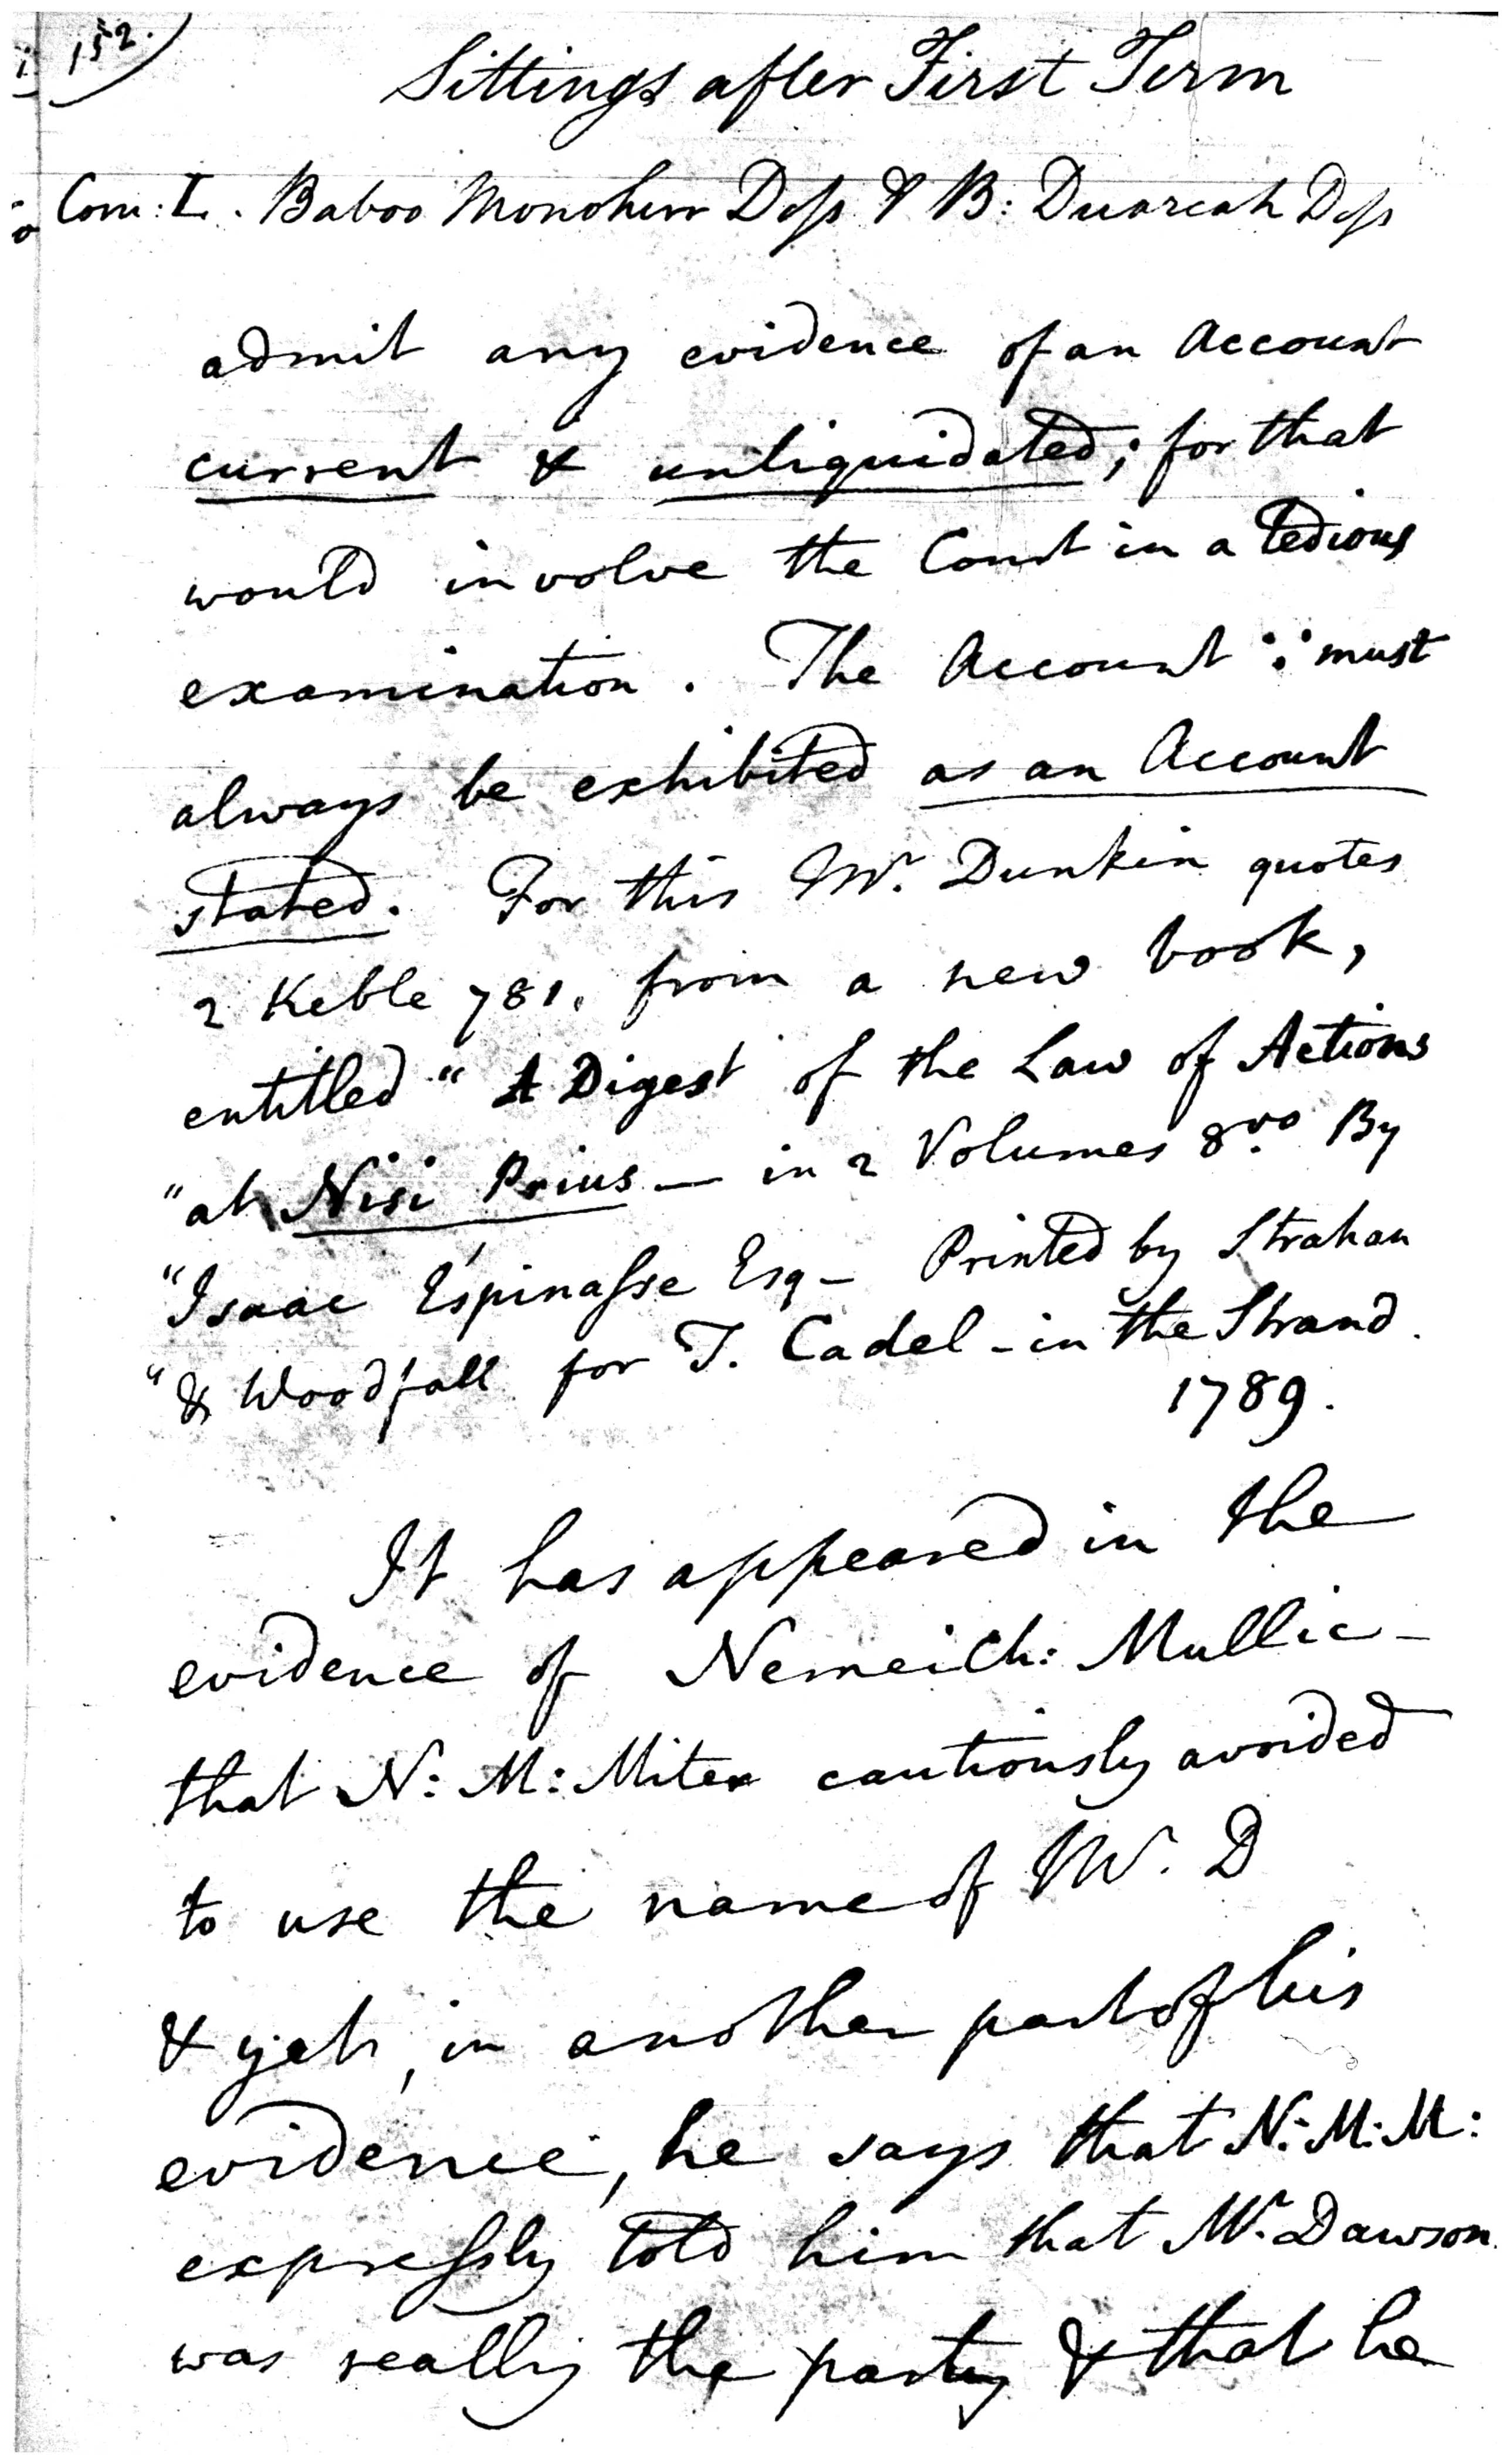 152.
Sittings after First Term
Com: L. Baboo Monohur Doss & B: Duarcah Doss
admit any evidence of an Account
current & unliquidated; for that
would involve the Court in a tedious
examination. The Account ∵ must
always be exhibited as an Account
stated. For this Mr. Dunkin quotes
2 Keble 781. from a new book,
entitled "A Digest of the Law of Actions
"at Nisi Prius — in 2 Volumes 8vo. By
"Isaac Espinasse Esq — Printed by Strahan
"& Woodfall for T. Cadel - in the Strand.
1789.
It has appeared in the
evidence of Nemeich: Mullic -
that N: M: Miter cautiously avoided
to use the name of Mr. D
& yet, in another part of his
evidence, he says that N: M: M:
expressly told him that Mr. Dawson
was really the party & that he